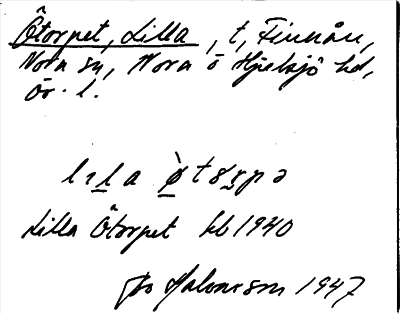 Ötorpet, Lilla, t, Finnån,
Nora sn, Nora o Hjulsjö hd,
Ör. l.
lıla ø̀torpə
Lilla Ötorpet hb 1940
Halvarson 1947